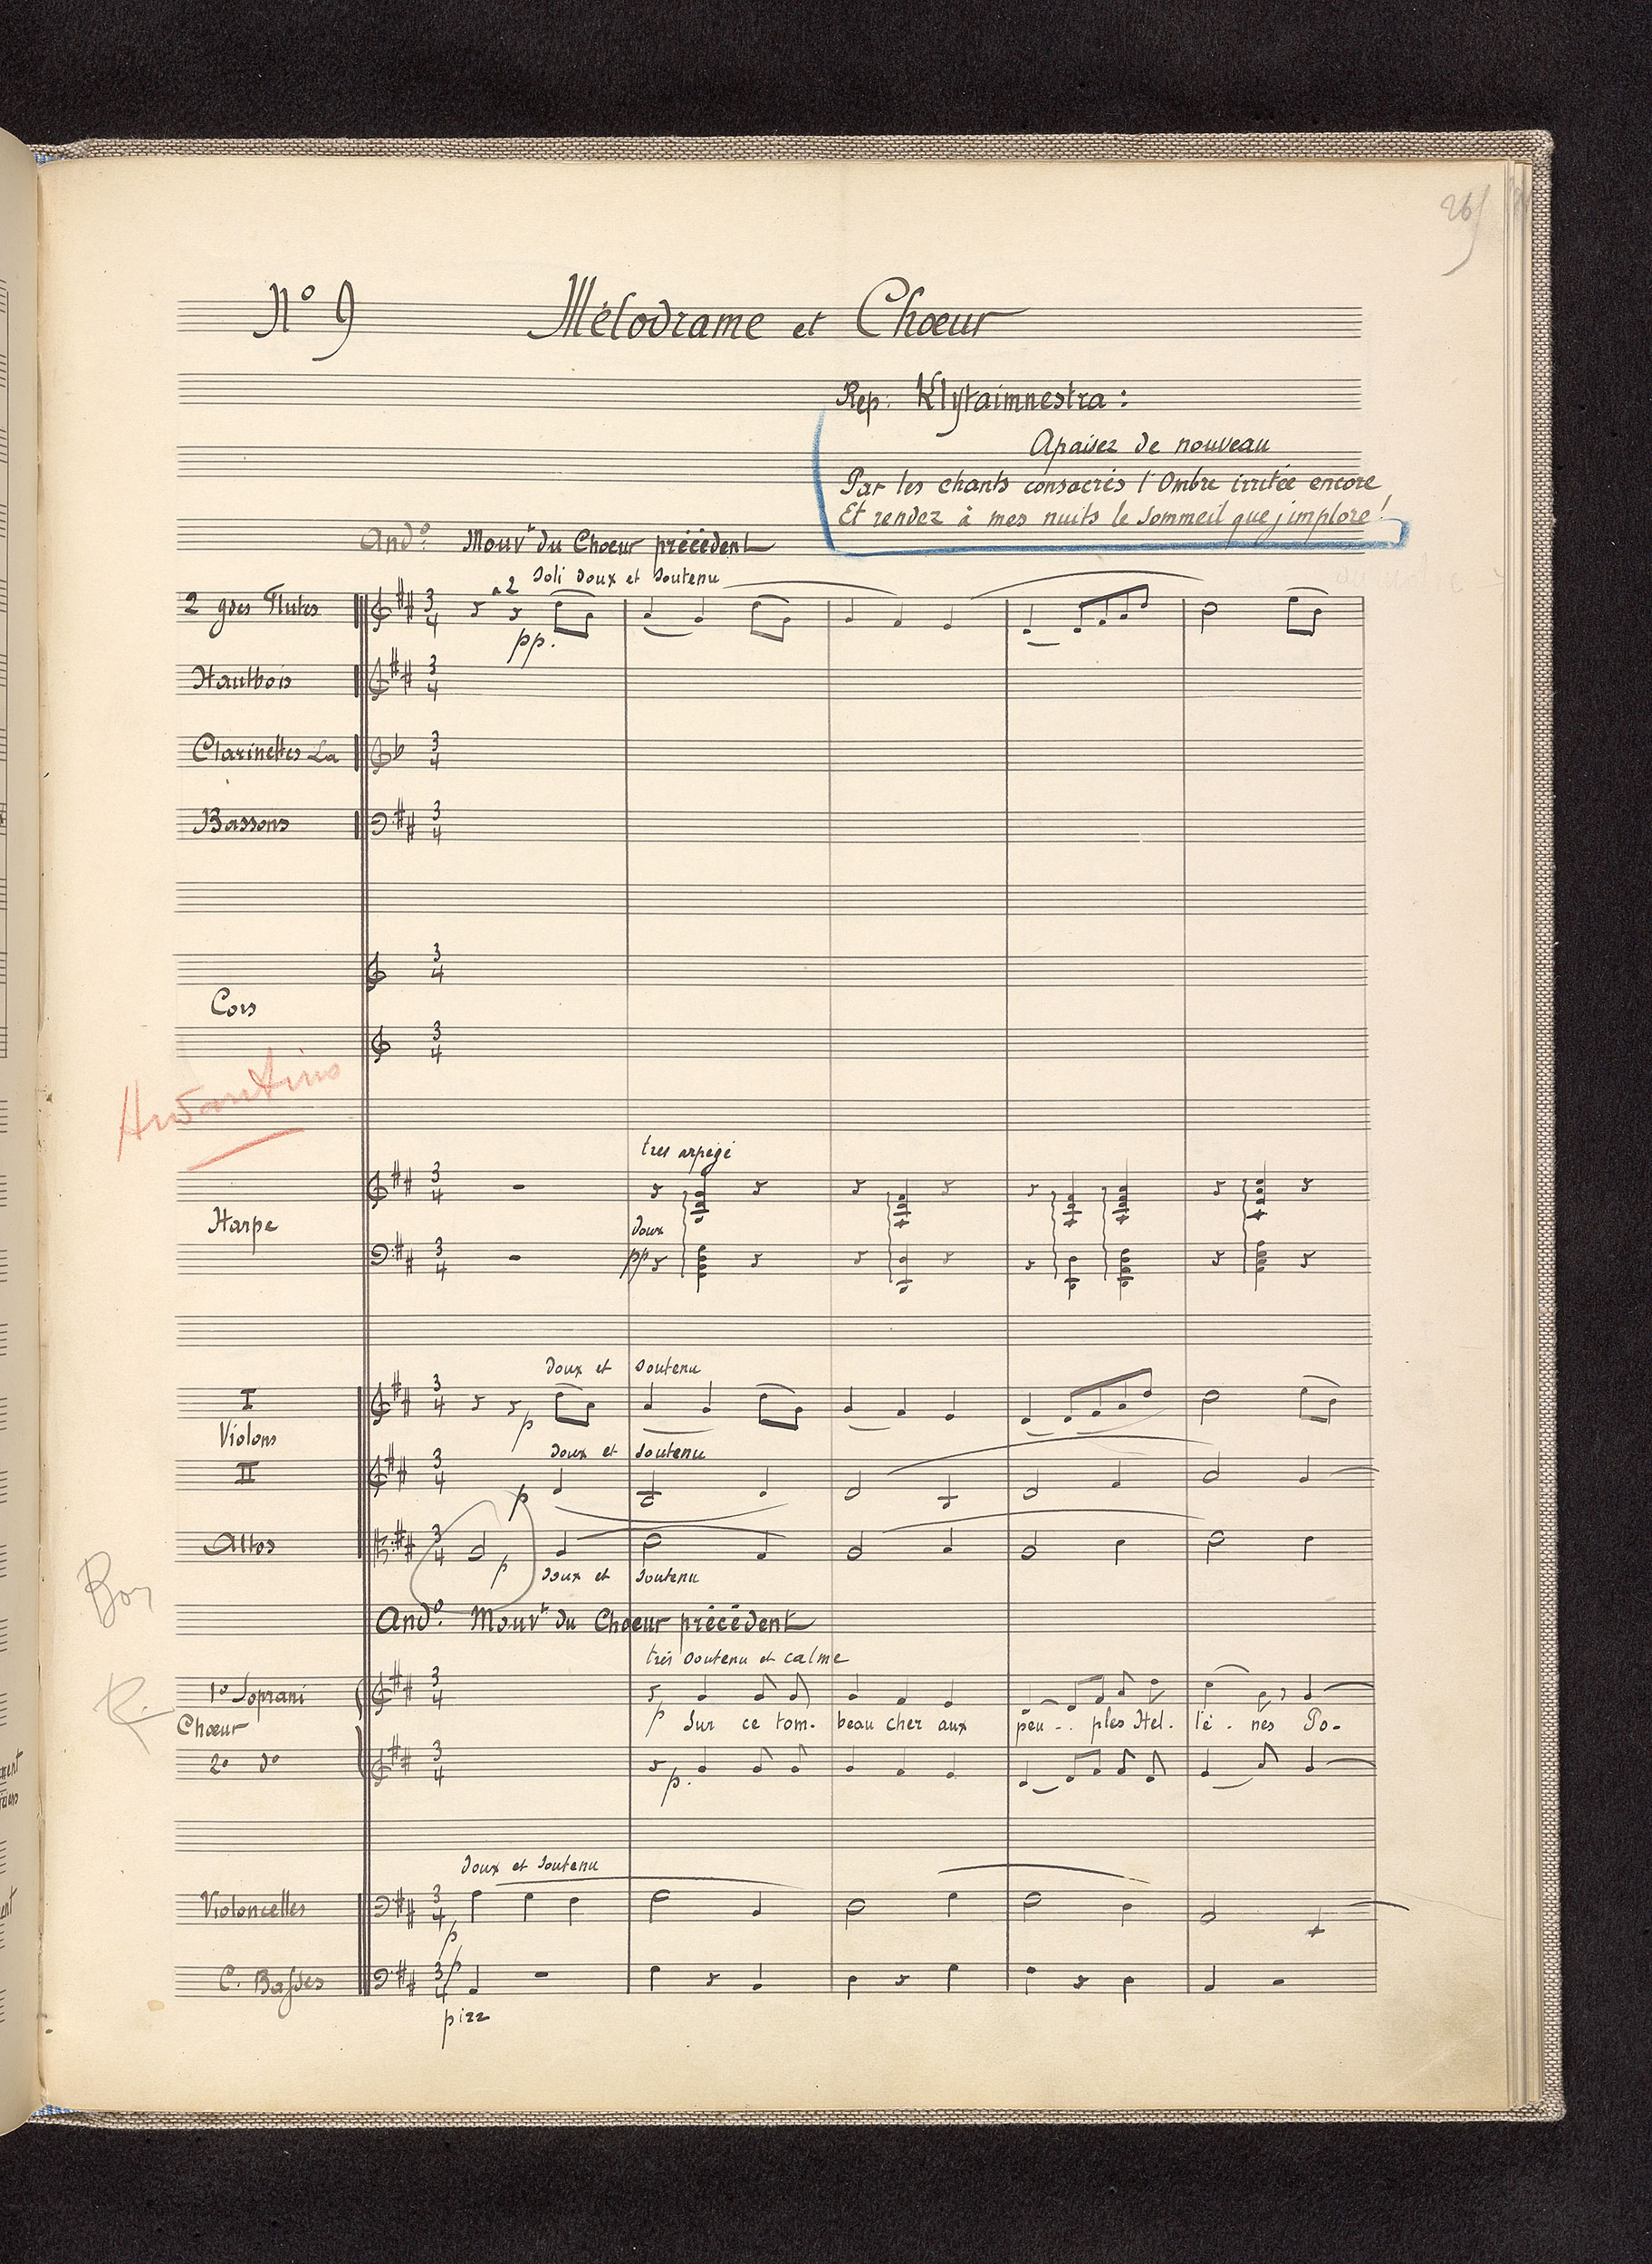 26
N° 9 Mélodrame et Chœur
Rep: Klytaimnestra:
Apaisez de nouveau
Par les chants consacrés l'Ombre irritée encore
Et rendez à mes nuits le sommeil que j'implore!
And°. Mouvt du Chœur précédent
a 2 Soli doux et soutenu
2 gdes Flutes
pp.
Hautbois
Clarinettes La
Bassons
Cors
Andantino
tres arpégé
Harpe
doux
pp
doux et soutenu
I
p
Violons
doux et soutenu
II
p
Altos
p doux et soutenu
And°. Mouvt du Chœur précédent
très soutenu et calme
1° Soprani
p Sur ce tom- beau cher aux peu -.. ples Hel. lè . nes Po-
Chœur
2° d°
p.
doux et soutenu
Violoncelles
p
C. Basses
p
pizz